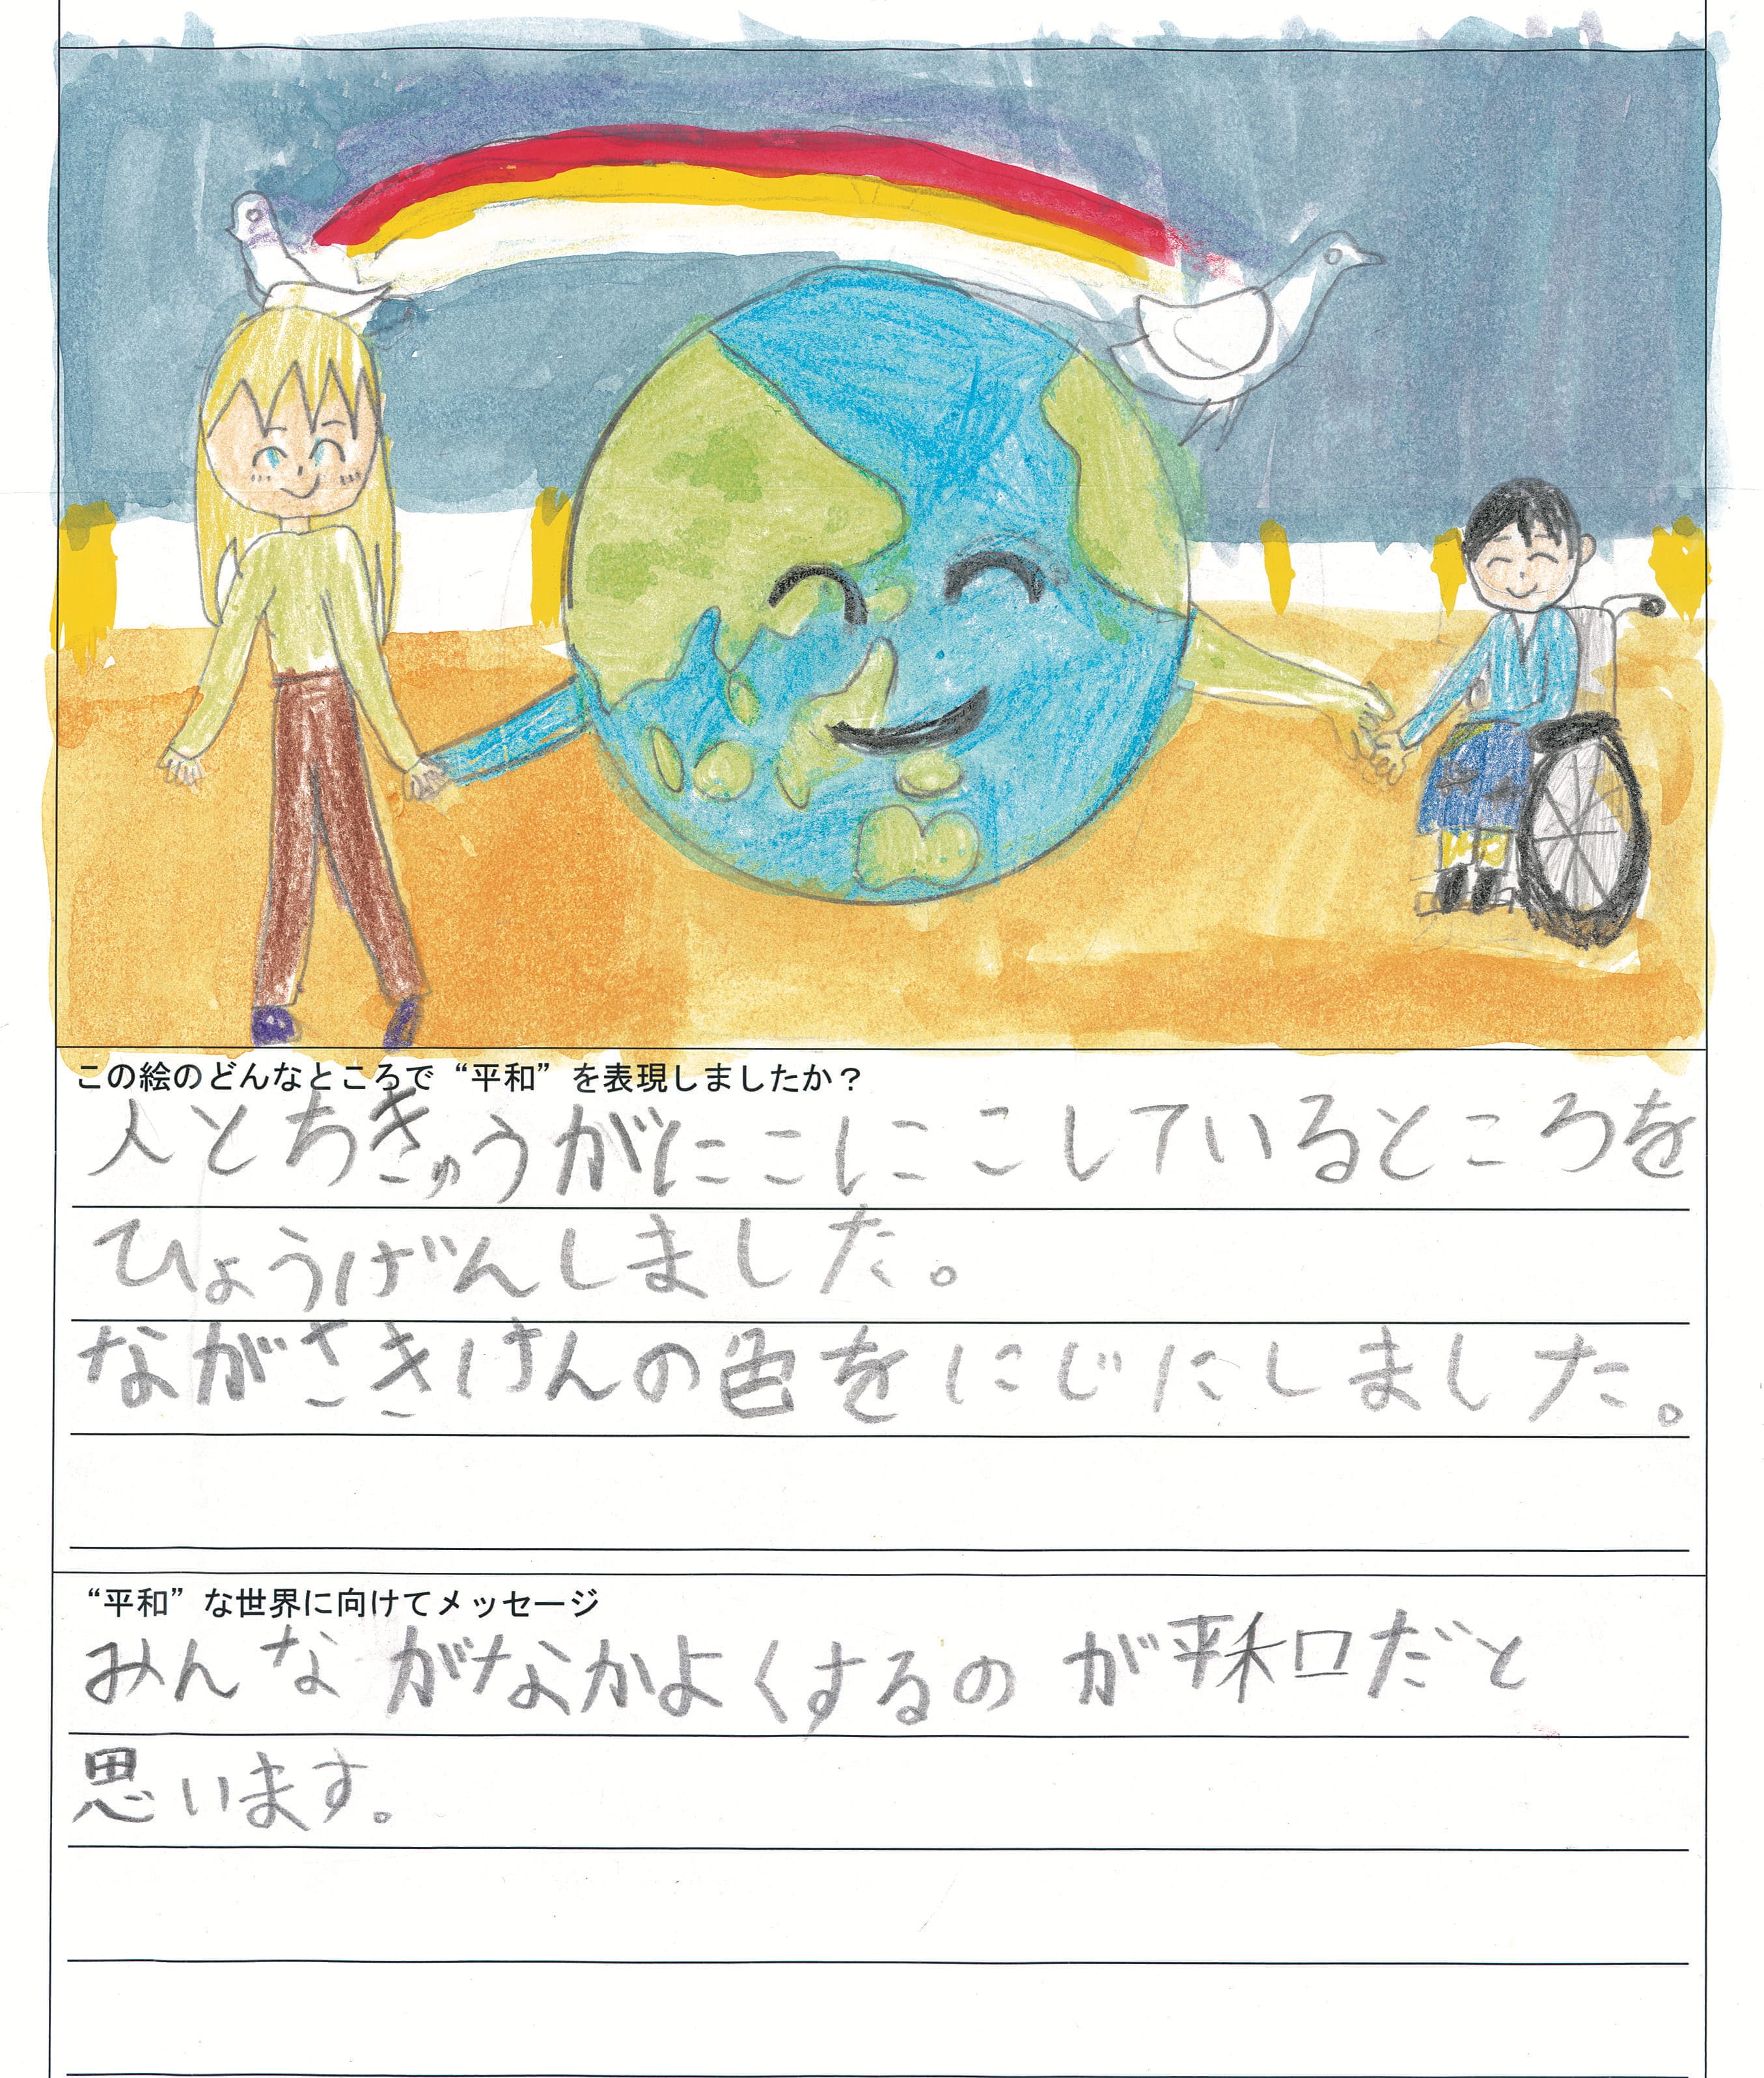 この絵のどんなところで“平和”を表現しましたか？
人とちきゅうがにこにこしているところを
ひょうげんしました。
ながさきけんの色をにじにしました。
“平和”な世界に向けてメッセージ
みんながなかよくするのが平和だと
思います。